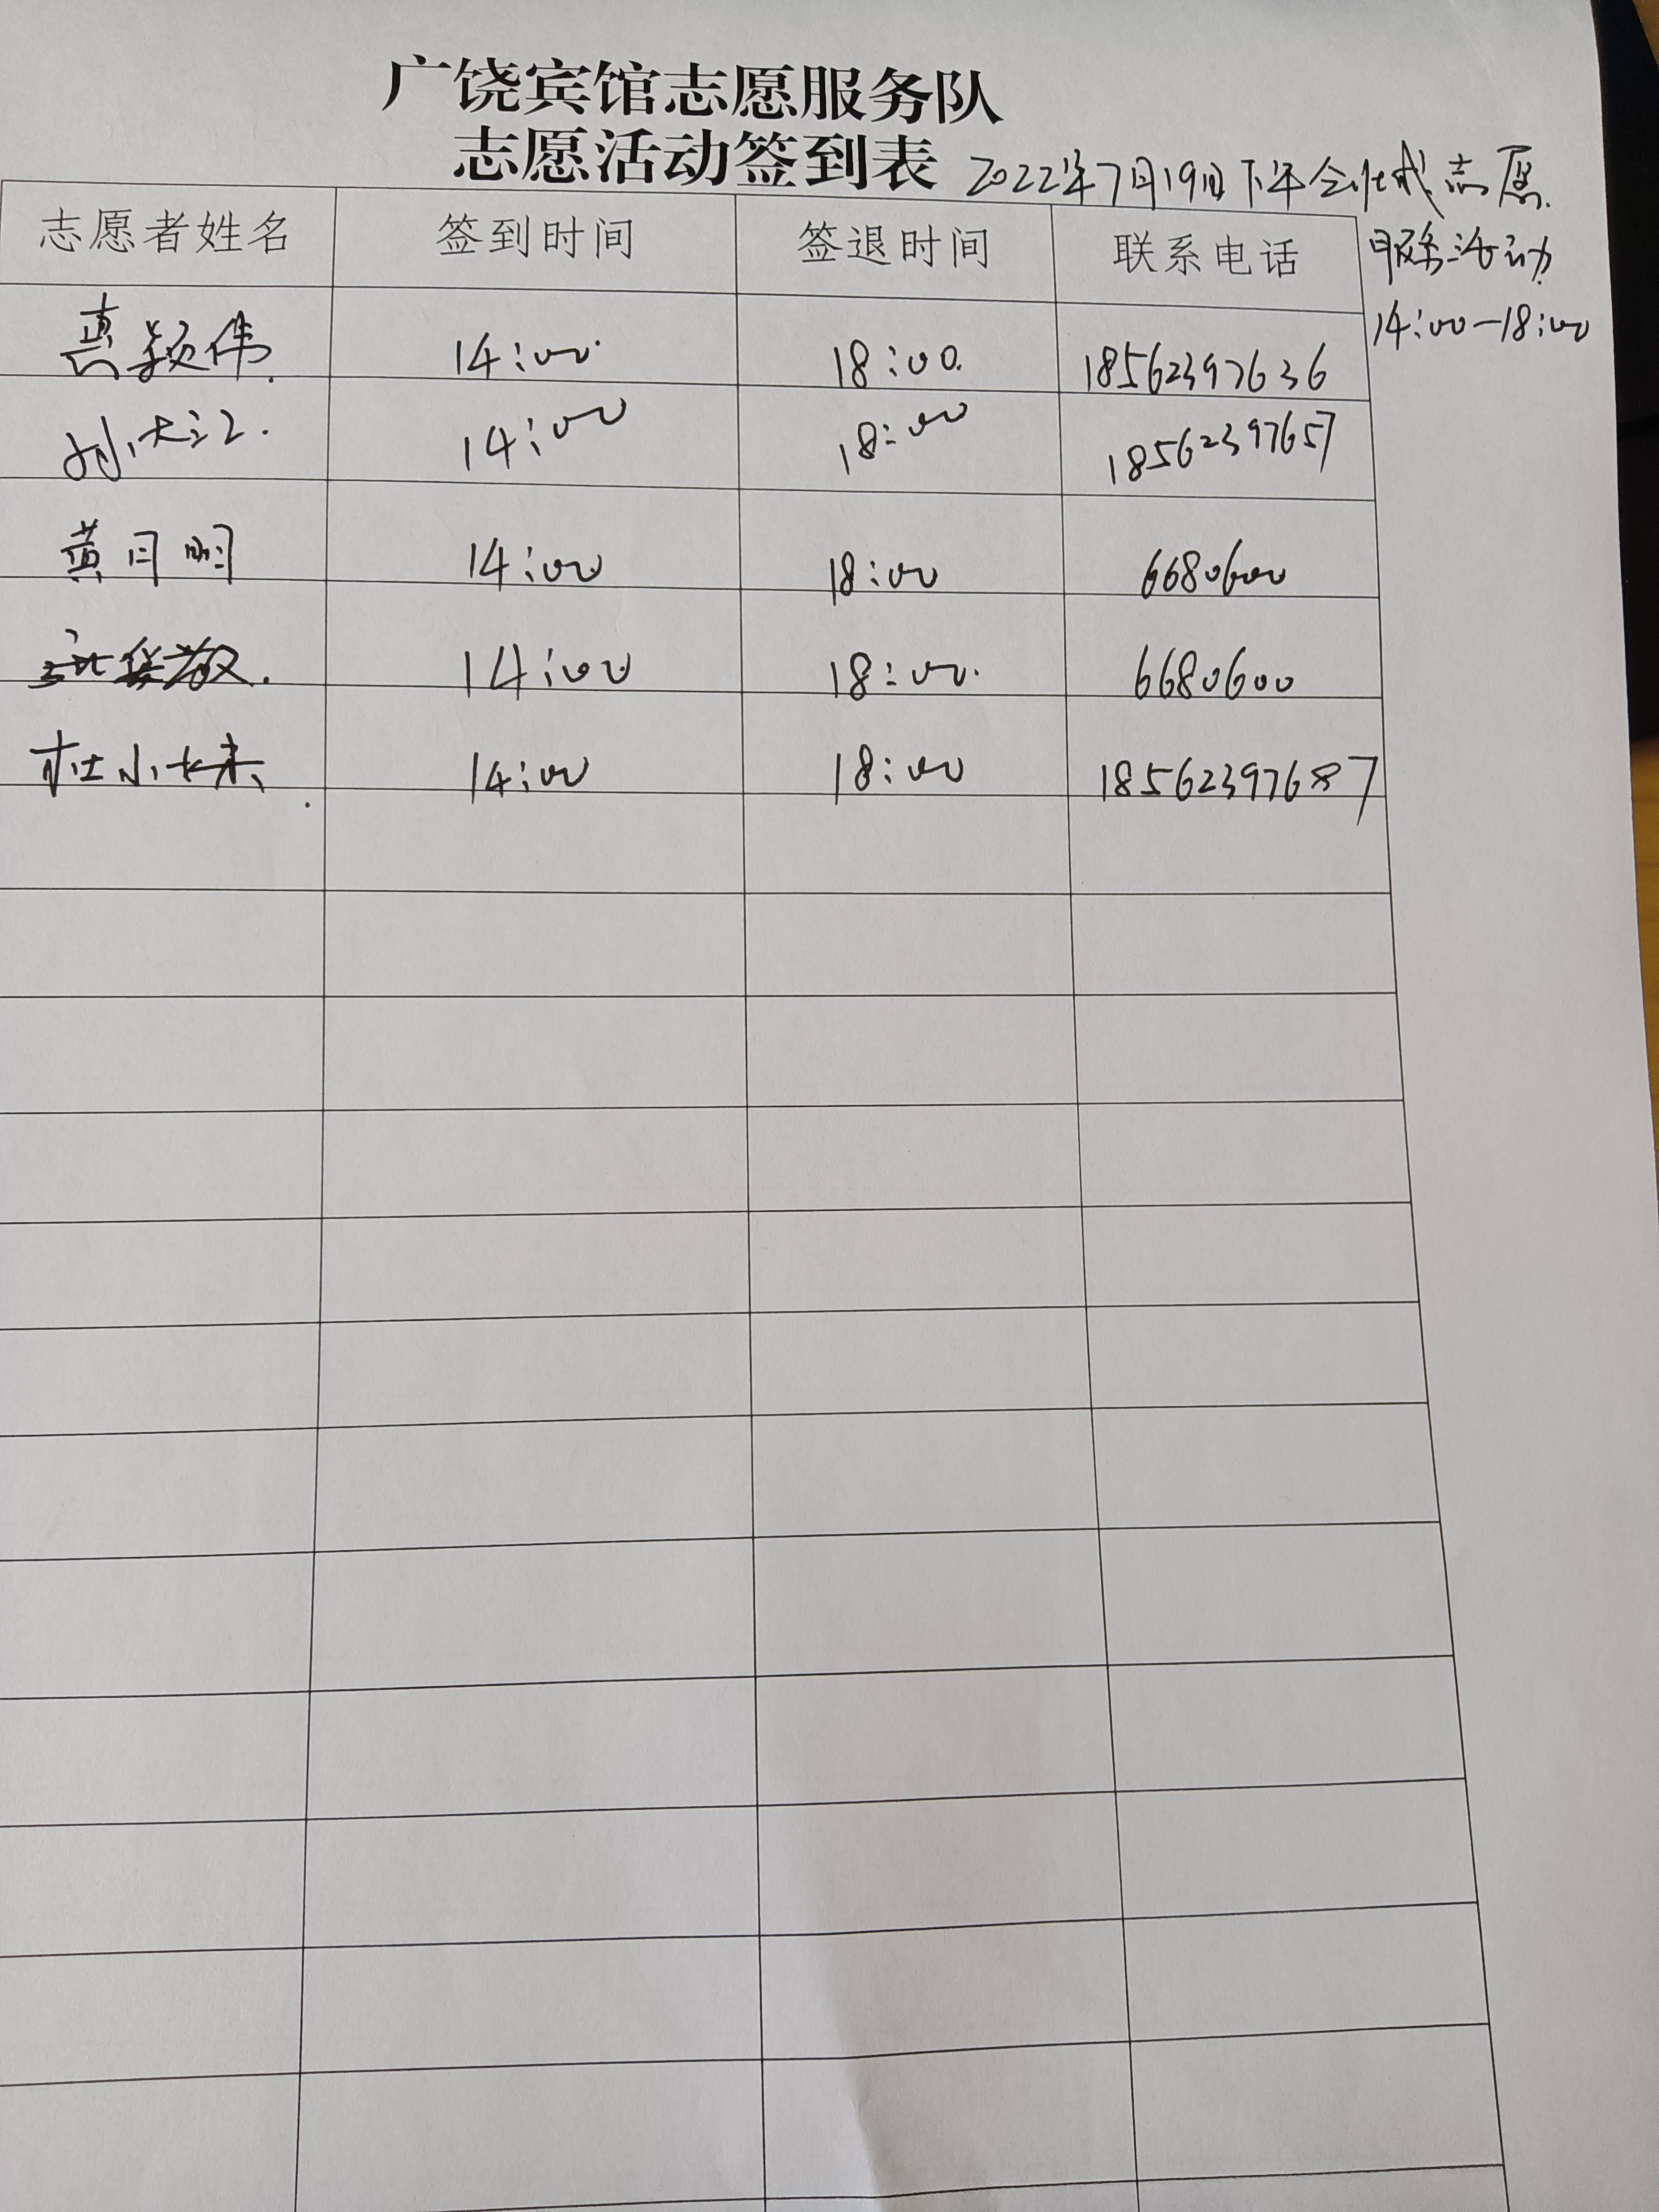 广饶宾馆志愿服务队
志愿活动签到表 2022年7月19日下午全域志愿
服务活动
14:00—18:00
志愿者姓名 签到时间 签退时间 联系电话
颖伟 14:00 18:00 18562397636
孙大江 14:00 18:00 18562397657
黄月明 14:00 18:00 6680600
14:00 18:00 6680600
杜小 14:00 18:00 18562397687